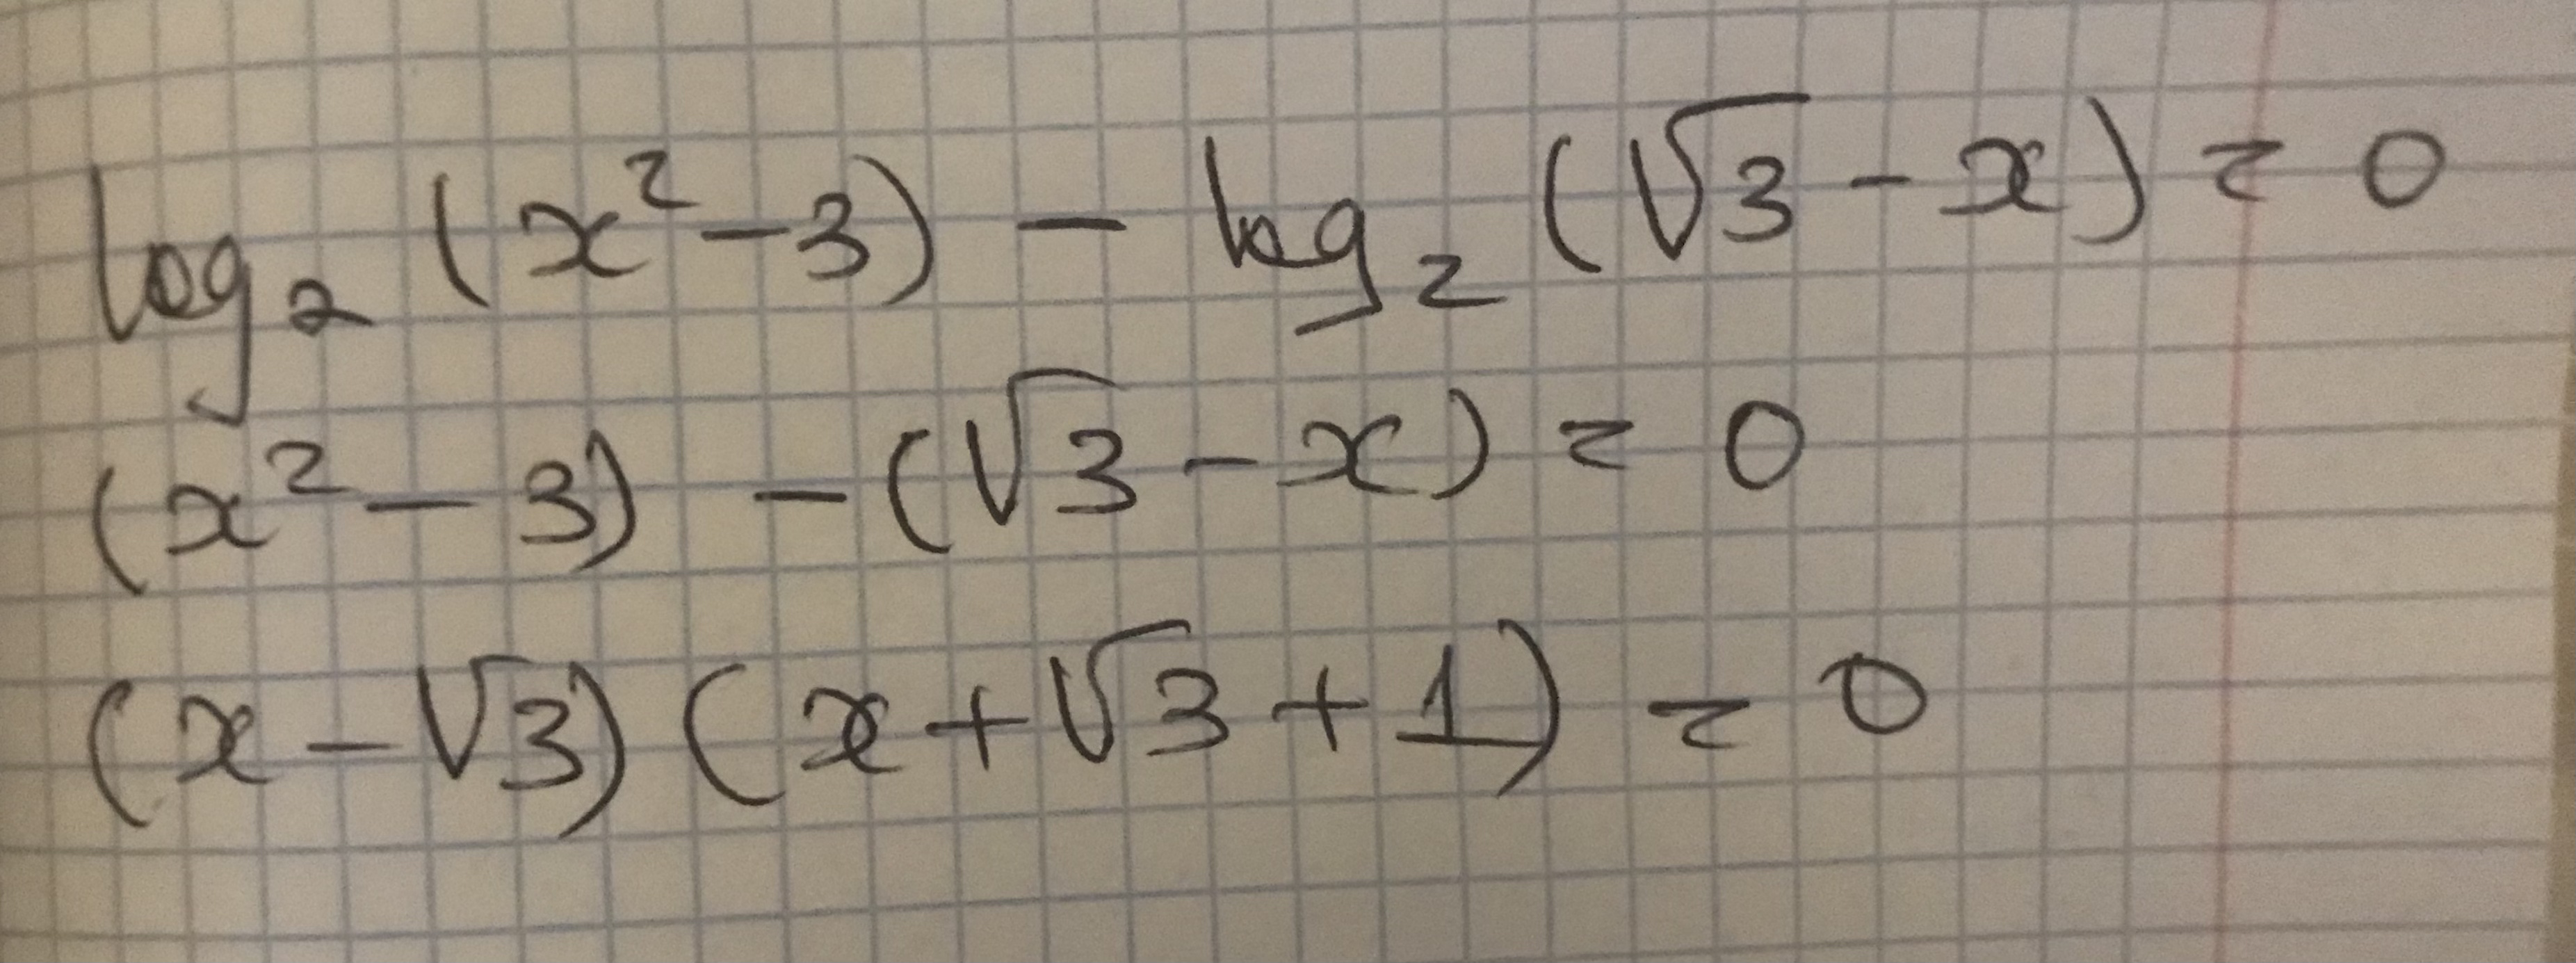 log₂ (x² - 3) - log₂ (√3 - x) = 0
(x² - 3) - (√3 - x) = 0
(x - √3) (x + √3 + 1) = 0